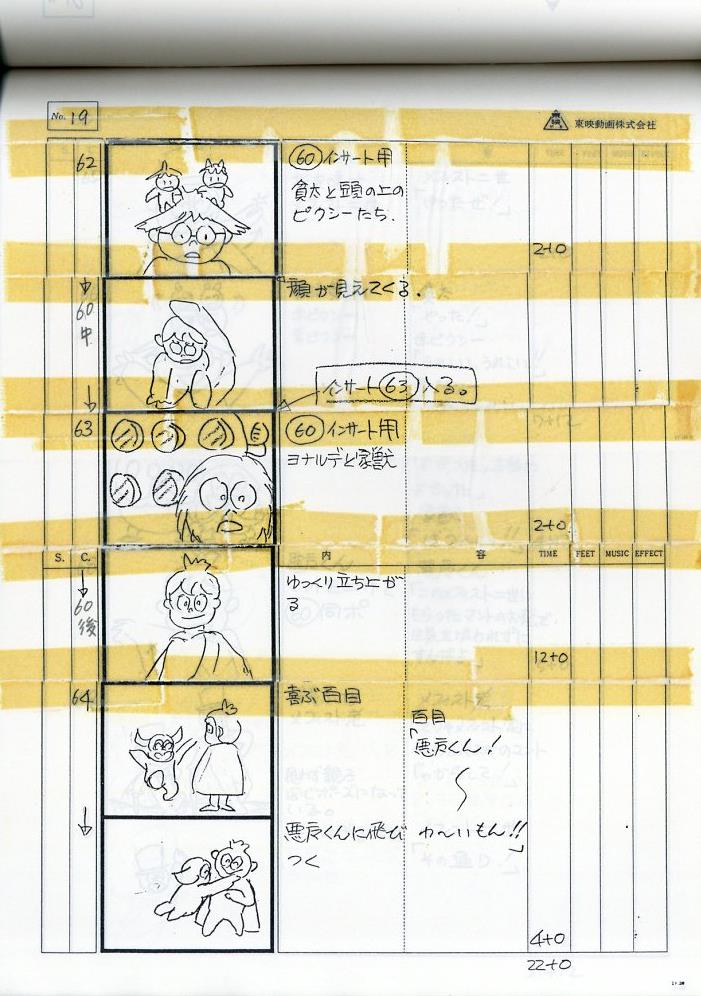 No. 19
東映動画株式会社
62
60 インサート用
貧太と頭の上の
ピクシーたち.
2+0
60
中
顔が見えてくる.
インサート 63 入る。
63
60 インサート用
ヨナルデと家獣
2+0
S. C. 内 容 TIME FEET MUSIC EFFECT
60
後
ゆっくり立ち上が
る
12+0
64
喜ぶ百目
百目
「悪魔くん!
悪魔くんに飛び
つく
わ〜いもん!!」
4+0
22+0